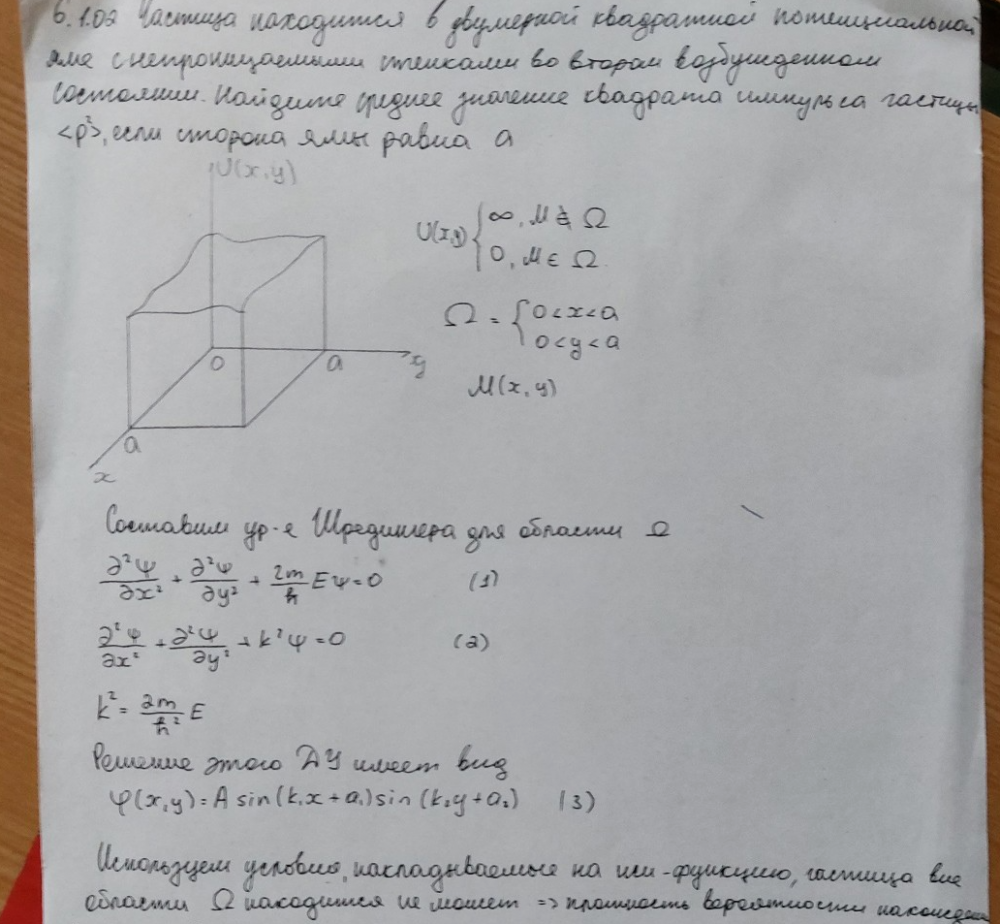 6.1.02 Частица находится в двумерной квадратной потенциальной
яме с непроницаемыми стенками во втором возбужденном
состоянии. Найдите среднее значение квадрата импульса частицы
<p²>, если сторона ямы равна a
U(x,y)
U(x,y) { ∞, M ∉ Ω
0, M ∈ Ω
Ω = { 0<x<a
0<y<a
M(x,y)
0
a
y
a
x
Составим ур-е Шредингера для области Ω
∂²Ψ/∂x² + ∂²Ψ/∂y² + 2m/ħ EΨ=0 (1)
∂²Ψ/∂x² + ∂²Ψ/∂y² + k²Ψ=0 (2)
k² = 2m/ħ² E
Решение этого ДУ имеет вид
φ(x,y)=A sin(k₁x+a₁)sin(k₂y+a₂) (3)
Используем условия, накладываемые на пси-функцию, частица вне
области Ω находится не может => плотность вероятности